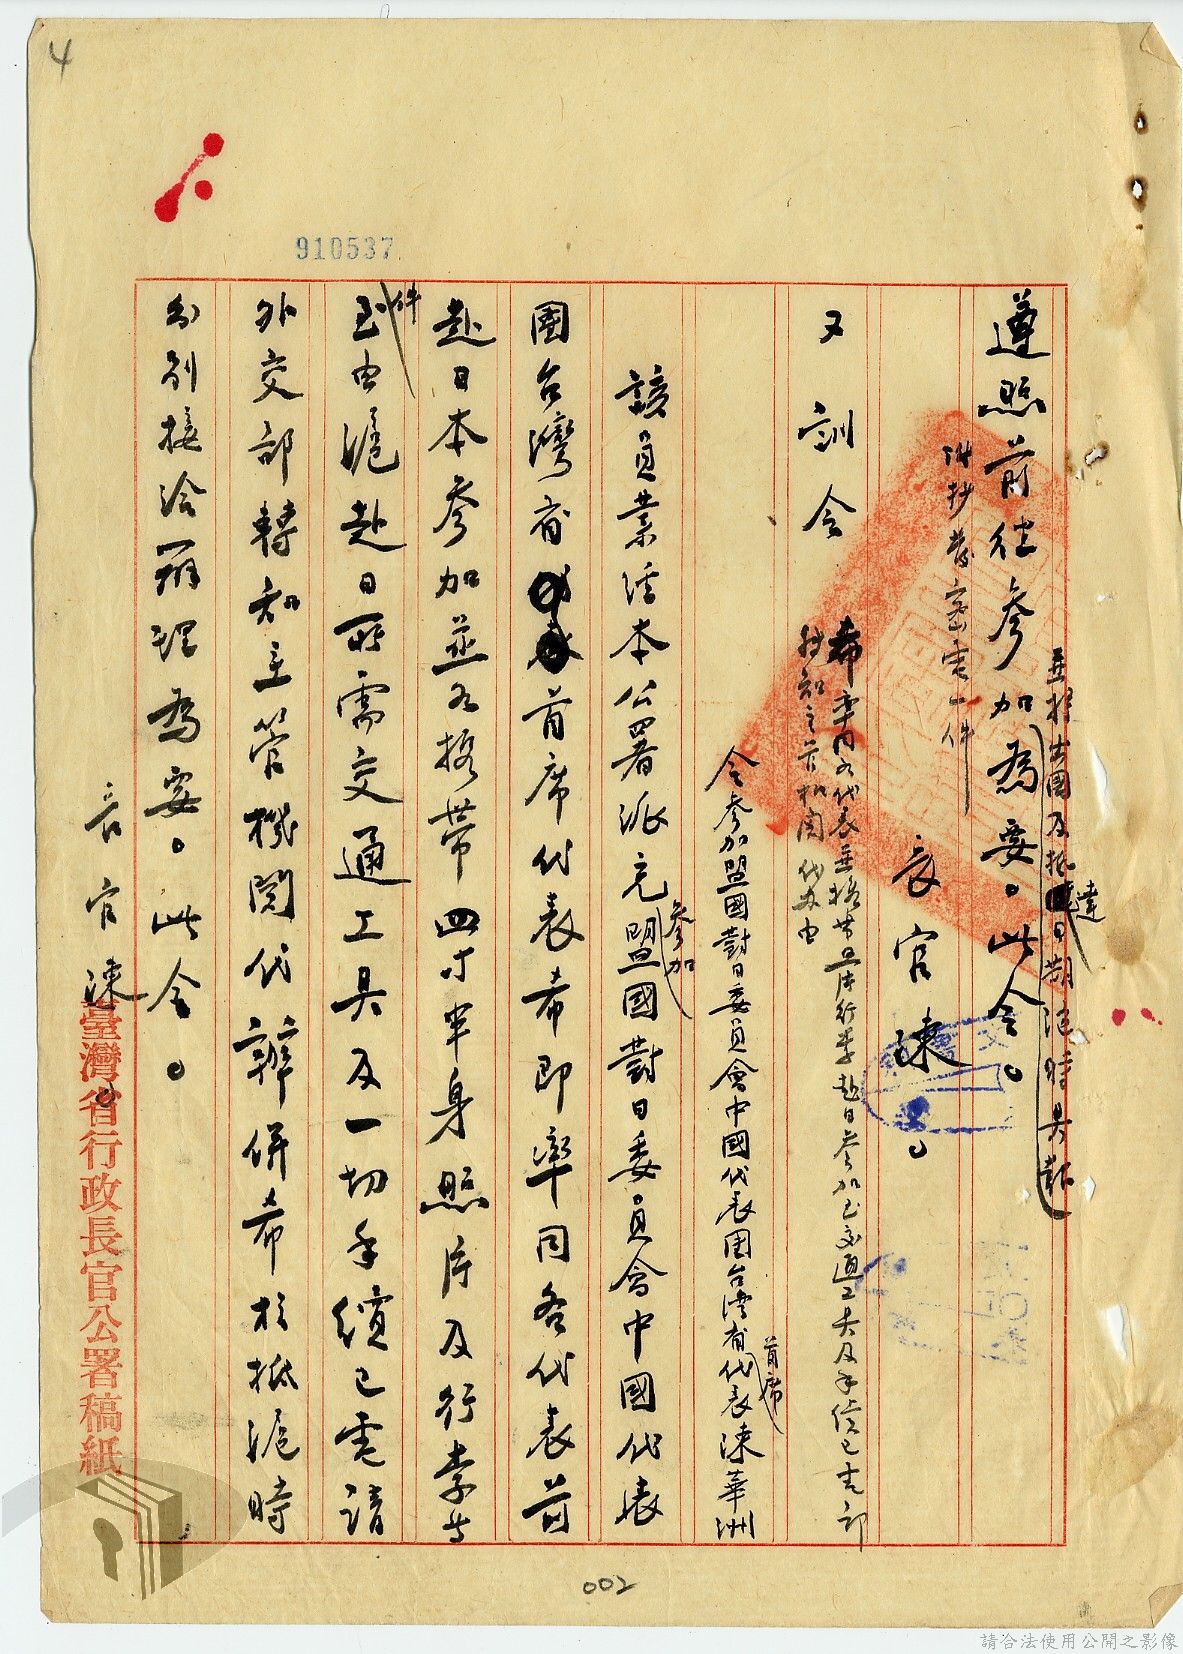 4
910537
並於出國及抵達日期隨時具報
遵照前往參加為要。此令。
附抄發密電一件
長官陳。
又訓令
希率同各代表並携帶照片行李赴日參加至交通工具及手續已電部
轉知主管機関代办由
令參加盟國對日委員會中國代表团台湾省首席代表陳華洲
該員業經本公署派充參加盟國對日委員會中國代表
團台灣省首席代表希即率同各代表前
赴日本參加並各携帶四寸半身照片及行李等
件至由滬赴日所需交通工具及一切手續已電請
外交部轉知主管機関代辦併希於抵滬時
分別接洽辦理為要。此令。
長官陳。
臺灣省行政長官公署稿紙
002
請合法使用公開之影像